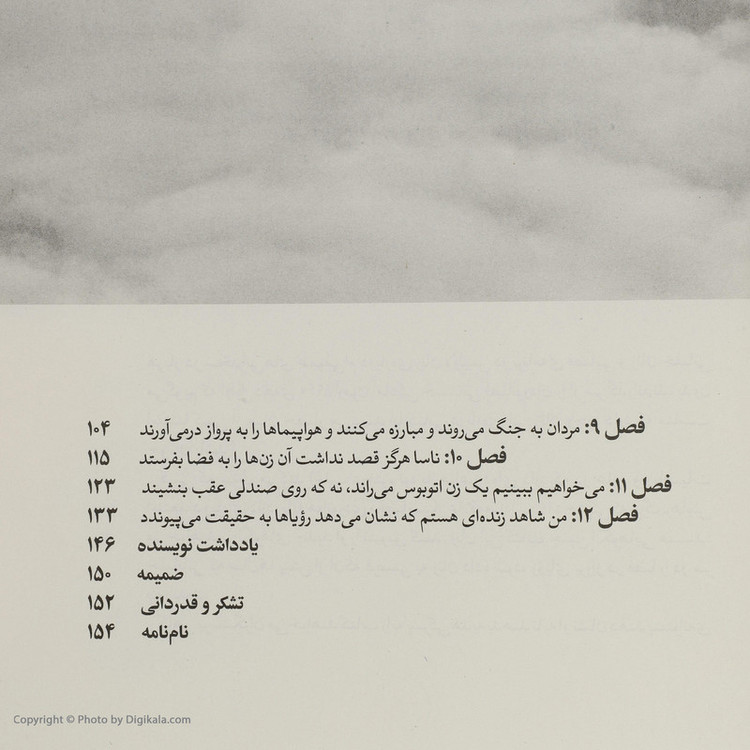 فصل ۹: مردان به جنگ می‌روند و مبارزه می‌کنند و هواپیماها را به پرواز درمی‌آورند ۱۰۴
فصل ۱۰: ناسا هرگز قصد نداشت آن زن‌ها را به فضا بفرستد ۱۱۵
فصل ۱۱: می‌خواهیم ببینیم یک زن اتوبوس می‌راند، نه که روی صندلی عقب بنشیند ۱۲۳
فصل ۱۲: من شاهد زنده‌ای هستم که نشان می‌دهد رؤیاها به حقیقت می‌پیوندد ۱۳۳
یادداشت نویسنده ۱۴۶
ضمیمه ۱۵۰
تشکر و قدردانی ۱۵۲
نام‌نامه ۱۵۴
Copyright © Photo by Digikala.com